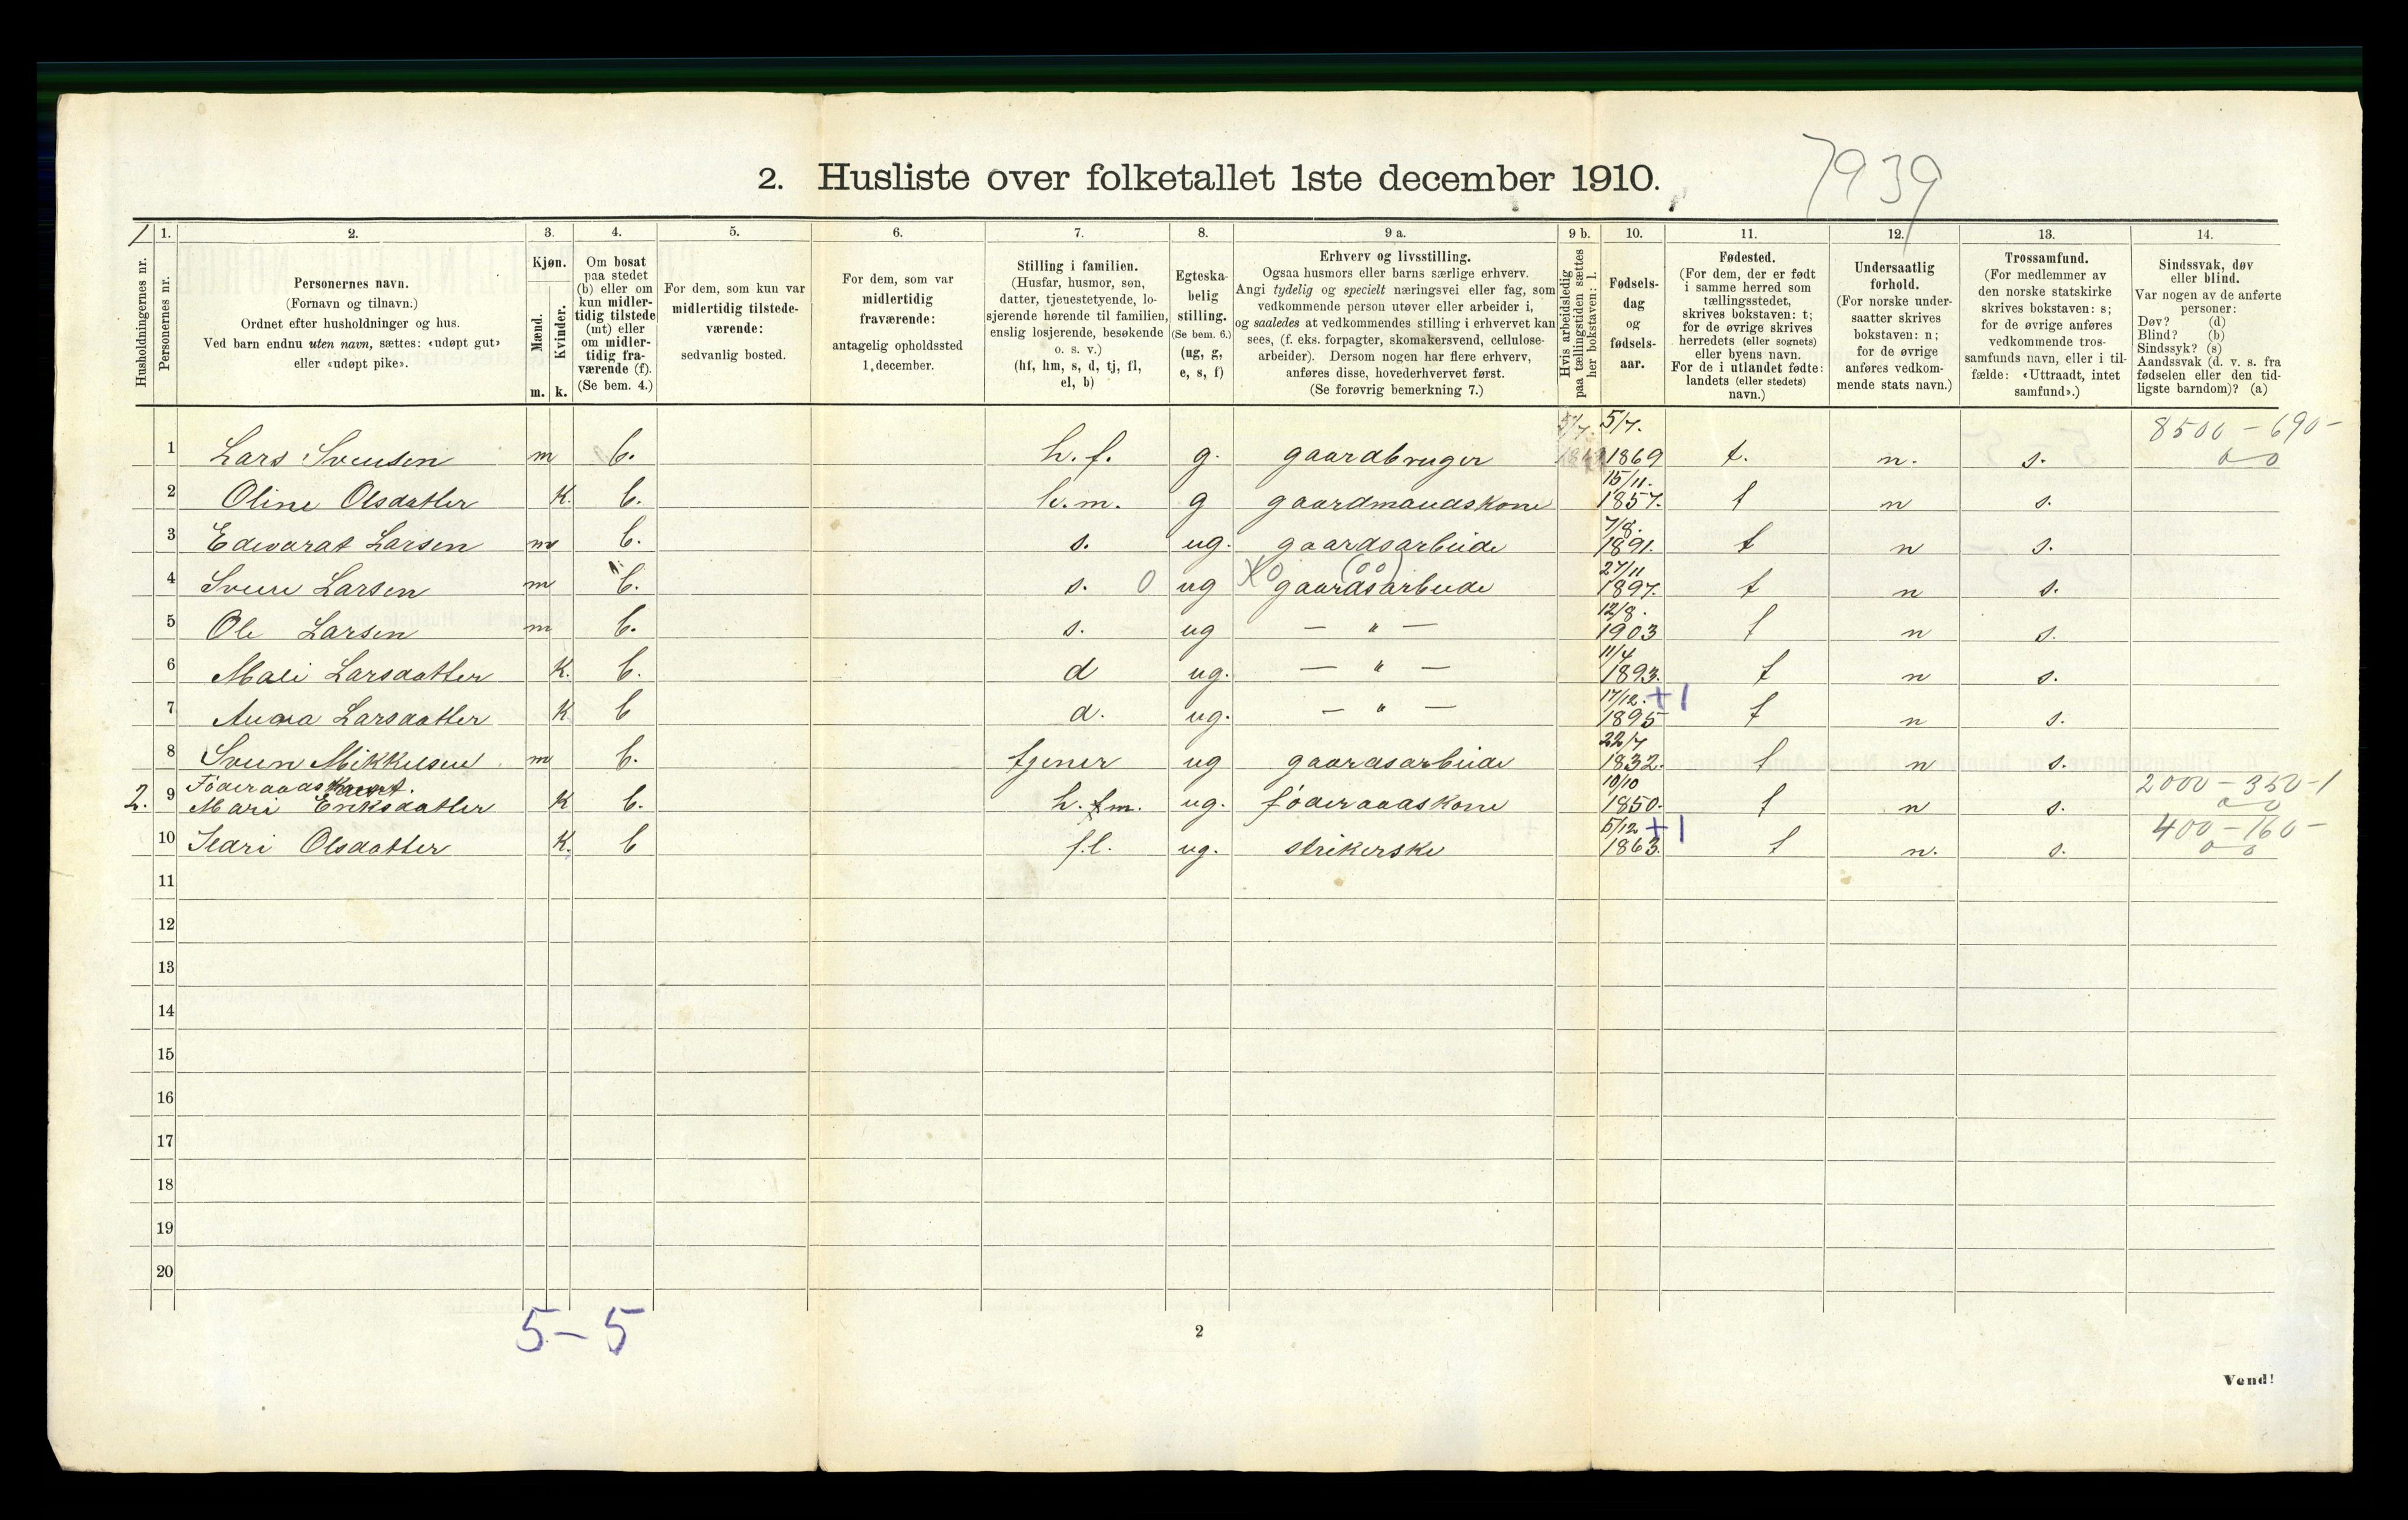 2. Husliste over folketallet 1ste december 1910.
7939
1
1. 2. 3. 4. 5. 6. 7. 8. 9 a. 9 b. 10. 11. 12. 13. 14.
Husholdningernes nr.
Personernes nr.
Personernes navn.
(Fornavn og tilnavn.)
Ordnet efter husholdninger og hus.
Ved barn endnu uten navn, sættes: «udøpt gut»
eller «udøpt pike».
Kjøn.
Mænd.
Kvinder.
m. k.
Om bosat
paa stedet
(b) eller om
kun midler-
tidig tilstede
(mt) eller
om midler-
tidig fra-
værende (f).
(Se bem. 4.)
For dem, som kun var
midlertidig tilstede-
værende:
sedvanlig bosted.
For dem, som var
midlertidig
fraværende:
antagelig opholdssted
1. december.
Stilling i familien.
(Husfar, husmor, søn,
datter, tjenestetyende, lo-
sjerende hørende til familien,
enslig losjerende, besøkende
o. s. v.)
(hf, hm, s, d, tj, fl,
el, b)
Egteska-
belig
stilling.
(Se bem. 6.)
(ug, g,
e, s, f)
Erhverv og livsstilling.
Ogsaa husmors eller barns særlige erhverv.
Angi tydelig og specielt næringsvei eller fag, som
vedkommende person utøver eller arbeider i,
og saaledes at vedkommendes stilling i erhvervet kan
sees, (f. eks. forpagter, skomakersvend, cellulose-
arbeider). Dersom nogen har flere erhverv,
anføres disse, hovederhvervet først.
(Se forøvrig bemerkning 7.)
Hvis arbeidsledig
paa tællingstiden sættes
her bokstaven: l.
Fødsels-
dag
og
fødsels-
aar.
Fødested.
(For dem, der er født
i samme herred som
tællingsstedet,
skrives bokstaven: t;
for de øvrige skrives
herredets (eller sognets)
eller byens navn.
For de i utlandet fødte:
landets (eller stedets)
navn.)
Undersaatlig
forhold.
(For norske under-
saatter skrives
bokstaven: n;
for de øvrige
anføres vedkom-
mende stats navn.)
Trossamfund.
(For medlemmer av
den norske statskirke
skrives bokstaven: s;
for de øvrige anføres
vedkommende tros-
samfunds navn, eller i til-
fælde: «Uttraadt, intet
samfund».)
Sindssvak, døv
eller blind.
Var nogen av de anførte
personer:
Døv? (d)
Blind? (b)
Sindssyk? (s)
Aandssvak (d. v. s. fra
fødselen eller den tid-
ligste barndom)? (a)
5/7. 5/7. 8500 - 690 -
1 Lars Svensen m b. h. f. g. gaardbruger 1869 t. n. s. 0 0
15/11.
2 Oline Olsdatter K. b. h. m. g gaardmandskone 1857. t n s.
7/8.
3 Edevarat Larsen m b. s. ug. gaardsarbeide 1891. t n s.
X0 (00) 27/11
4 Svein Larsen m b. s. 0 ug gaardsarbeide 1897. t n s.
12/8.
5 Ole Larsen m b. s. ug — " — 1903 t n s.
11/4
6 Mali Larsdatter K. b. d ug. — " — 1893. t n s.
17/12. +1
7 Anna Larsdatter K b d. ug. — " — 1895 t n s.
22/7
8 Svein Mikkelsen m b. tjener ug gaardsarbeide 1832. t n s.
Föderaadskaret. 10/10 2000 - 350 - 1
2. 9 Mari Eriksdatter K b. h. m. ug. föderaadskone 1850. t n s. 0 0
5/12 +1 400 - 160 -
10 Siari Olsdatter K. b f.l. ug. strikerske 1863. t n. s. 0 0
11
12
13
14
15
16
17
18
19
20
5 - 5
2
Vend!